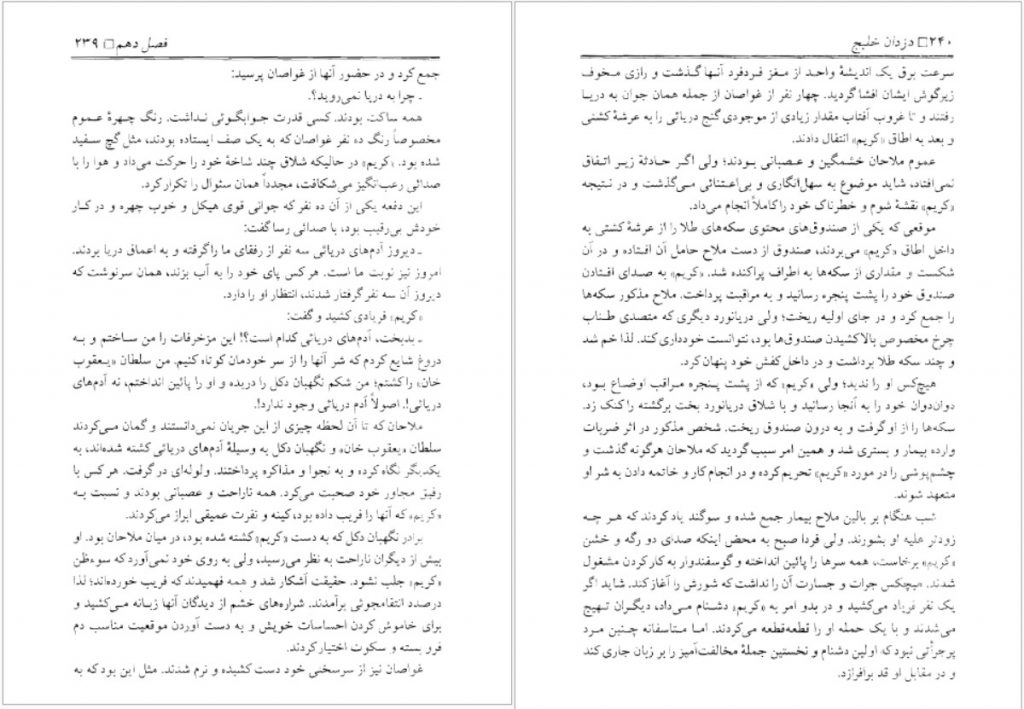 فصل دهم □ ۲۳۹
جمع کرد و در حضور آنها از غواصان پرسید:
ـ چرا به دریا نمی‌روید؟.
همه ساکت بودند. کسی قدرت جوابگوئی نداشت. رنگ چهرهٔ عموم
مخصوصاً رنگ ده نفر غواصان که به یک صف ایستاده بودند، مثل گچ سفید
شده بود. «کریم» در حالیکه شلاق چند شاخهٔ خود را حرکت می‌داد و هوا را با
صدائی رعب‌انگیز می‌شکافت، مجدداً همان سئوال را تکرار کرد.
این دفعه یکی از آن ده نفر که جوانی قوی هیکل و خوب چهره و در کار
خودش بی‌رقیب بود، با صدائی رسا گفت:
ـ دیروز آدم‌های دریائی سه نفر از رفقای ما را گرفته و به اعماق دریا بردند.
امروز نیز نوبت ما است. هر کس پای خود را به آب بزند، همان سرنوشت که
دیروز آن سه نفر گرفتار شدند، انتظار او را دارد.
«کریم» فریادی کشید و گفت:
ـ بدبخت، آدم‌های دریائی کدام است؟! این مزخرفات را من ساختم و به
دروغ شایع کردم که شر آنها را از سر خودمان کوتاه کنیم. من سلطان «یعقوب
خان» را کشتم؛ من شکم نگهبان دکل را دریده و او را پائین انداختم، نه آدم‌های
دریائی!. اصولاً آدم دریائی وجود ندارد!.
ملاحان که تا آن لحظه چیزی از این جریان نمی‌دانستند و گمان می‌کردند
سلطان «یعقوب خان» و نگهبان دکل به وسیلهٔ آدم‌های دریائی کشته شده‌اند، به
یکدیگر نگاه کرده و به نجوا و مذاکره پرداختند. ولوله‌ای در گرفت. هر کس با
رفیق مجاور خود صحبت می‌کرد. همه ناراحت و عصبانی بودند و نسبت به
«کریم» که آنها را فریب داده بود، کینه و نفرت عمیقی ابراز می‌کردند.
برادر نگهبان دکل که به دست «کریم» کشته شده بود، در میان ملاحان بود. او
بیش از دیگران ناراحت به نظر می‌رسید، ولی به روی خود نمی‌آورد که سوءظن
«کریم» جلب نشود. حقیقت آشکار شد و همه فهمیدند که فریب خورده‌اند؛ لذا
درصدد انتقامجوئی برآمدند. شراره‌های خشم از دیدگان آنها زبانه می‌کشید و
برای خاموش کردن احساسات خویش و به دست آوردن موقعیت مناسب دم
فرو بسته و سکوت اختیار کردند.
غواصان نیز از سرسختی خود دست کشیده و نرم شدند. مثل این بود که به
۲۴۰ □ دزدان خلیج
سرعت برق یک اندیشهٔ واحد از مغز فردفرد آنها گذشت و رازی مخوف
زیرگوش ایشان افشا گردید. چهار نفر از غواصان از جمله همان جوان به دریا
رفتند و تا غروب آفتاب مقدار زیادی از موجودی گنج دریائی را به عرشهٔ کشتی
و بعد به اطاق «کریم» انتقال دادند.
عموم ملاحان خشمگین و عصبانی بودند؛ ولی اگر حادثهٔ زیر اتفاق
نمی‌افتاد، شاید موضوع به سهل‌انگاری و بی‌اعتنائی می‌گذشت و در نتیجه
«کریم» نقشهٔ شوم و خطرناک خود را کاملاً انجام می‌داد.
موقعی که یکی از صندوق‌های محتوی سکه‌های طلا را از عرشهٔ کشتی به
داخل اطاق «کریم» می‌بردند، صندوق از دست ملاح حامل آن افتاده و در آن
شکست و مقداری از سکه‌ها به اطراف پراکنده شد. «کریم» به صدای افتادن
صندوق خود را پشت پنجره رسانید و به مراقبت پرداخت. ملاح مذکور سکه‌ها
را جمع کرد و در جای اولیه ریخت؛ ولی دریانورد دیگری که متصدی طناب
چرخ مخصوص بالاکشیدن صندوق‌ها بود، نتوانست خودداری کند. لذا خم شد
و چند سکه طلا برداشت و در داخل کفش خود پنهان کرد.
هیچ‌کس او را ندید؛ ولی «کریم» که از پشت پنجره مراقب اوضاع بود،
دوان‌دوان خود را به آنجا رسانید و با شلاق دریانورد بخت برگشته را کتک زد.
سکه‌ها را از او گرفت و به درون صندوق ریخت. شخص مذکور در اثر ضربات
وارده بیمار و بستری شد و همین امر سبب گردید که ملاحان هرگونه گذشت و
چشم‌پوشی را در مورد «کریم» تحریم کرده و در انجام کار و خاتمه دادن به شر او
متعهد شوند.
شب هنگام بر بالین ملاح بیمار جمع شده و سوگند یاد کردند که هر چه
زودتر علیه او بشورند. ولی فردا صبح به محض اینکه صدای دو رگه و خشن
«کریم» برخاست، همه سرها را پائین انداخته و گوسفندوار به کار کردن مشغول
شدند. هیچکس جرات و جسارت آن را نداشت که شورش را آغاز کند. شاید اگر
یک نفر فریاد می‌کشید و در بدو امر به «کریم» دشنام می‌داد، دیگران تهیج
می‌شدند و با یک حمله او را قطعه‌قطعه می‌کردند. اما متاسفانه چنین مرد
پرجرأتی نبود که اولین دشنام و نخستین جملهٔ مخالفت‌آمیز را بر زبان جاری کند
و در مقابل او قد برافرازد.